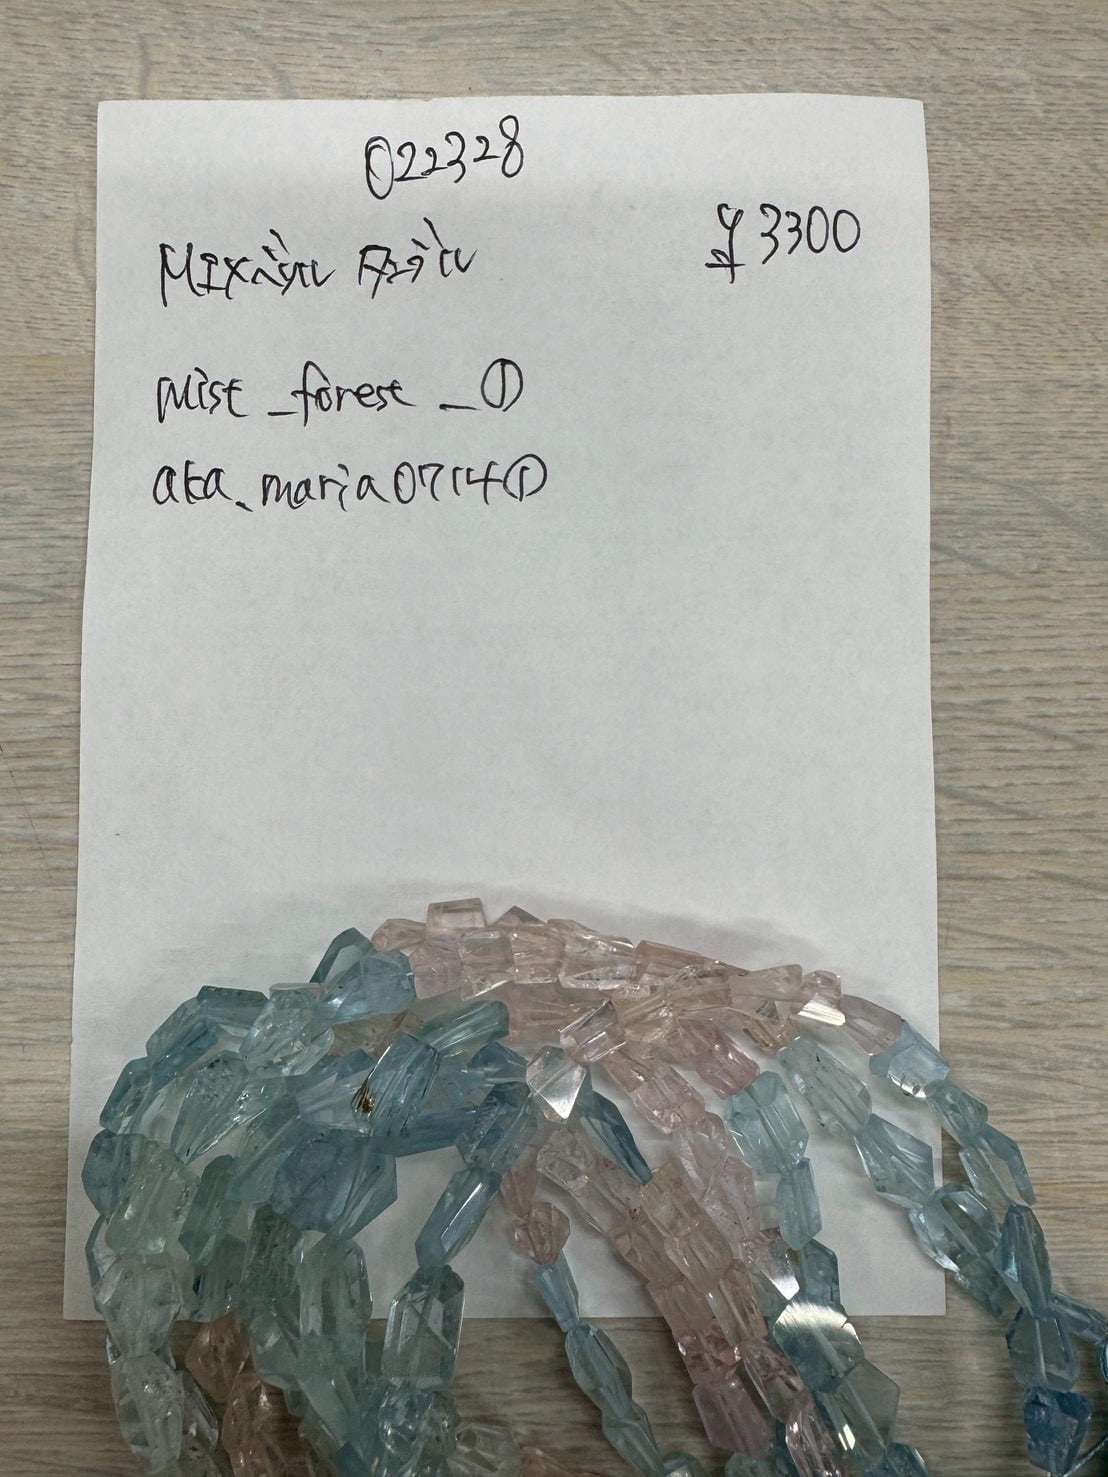 022328
MIXベリル タンブル
¥3300
Mist_forest_①
aka_maria0714①